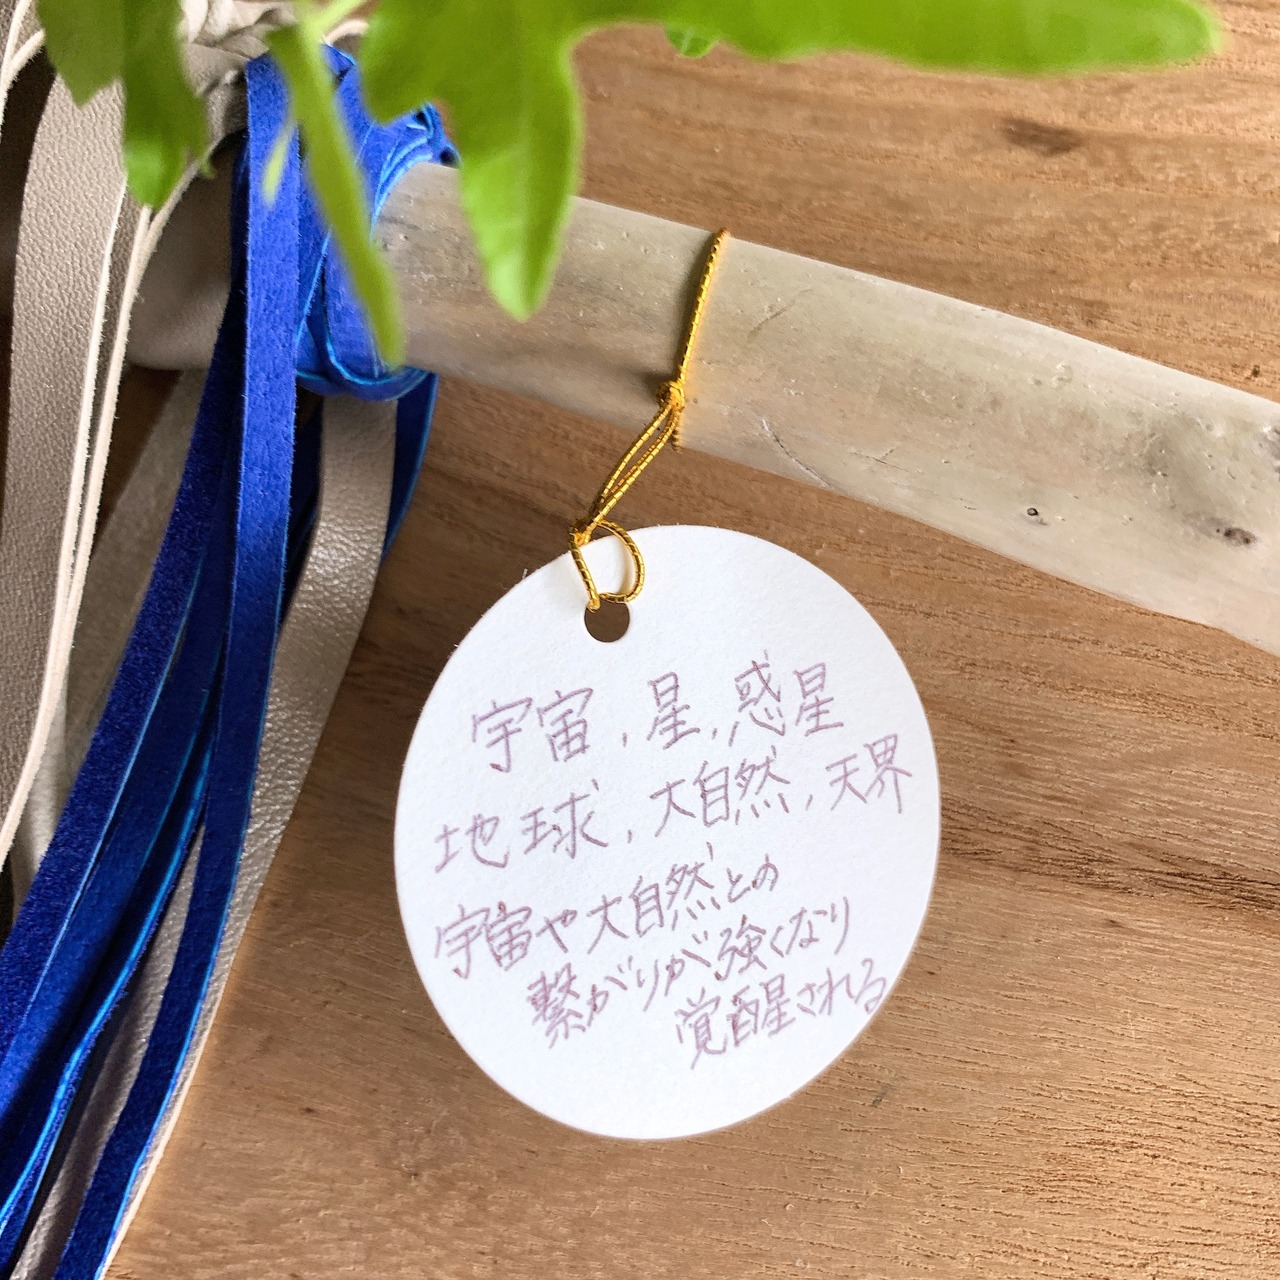 宇宙,星,惑星
地球,大自然,天界
宇宙や大自然との
繋がりが強くなり
覚醒される